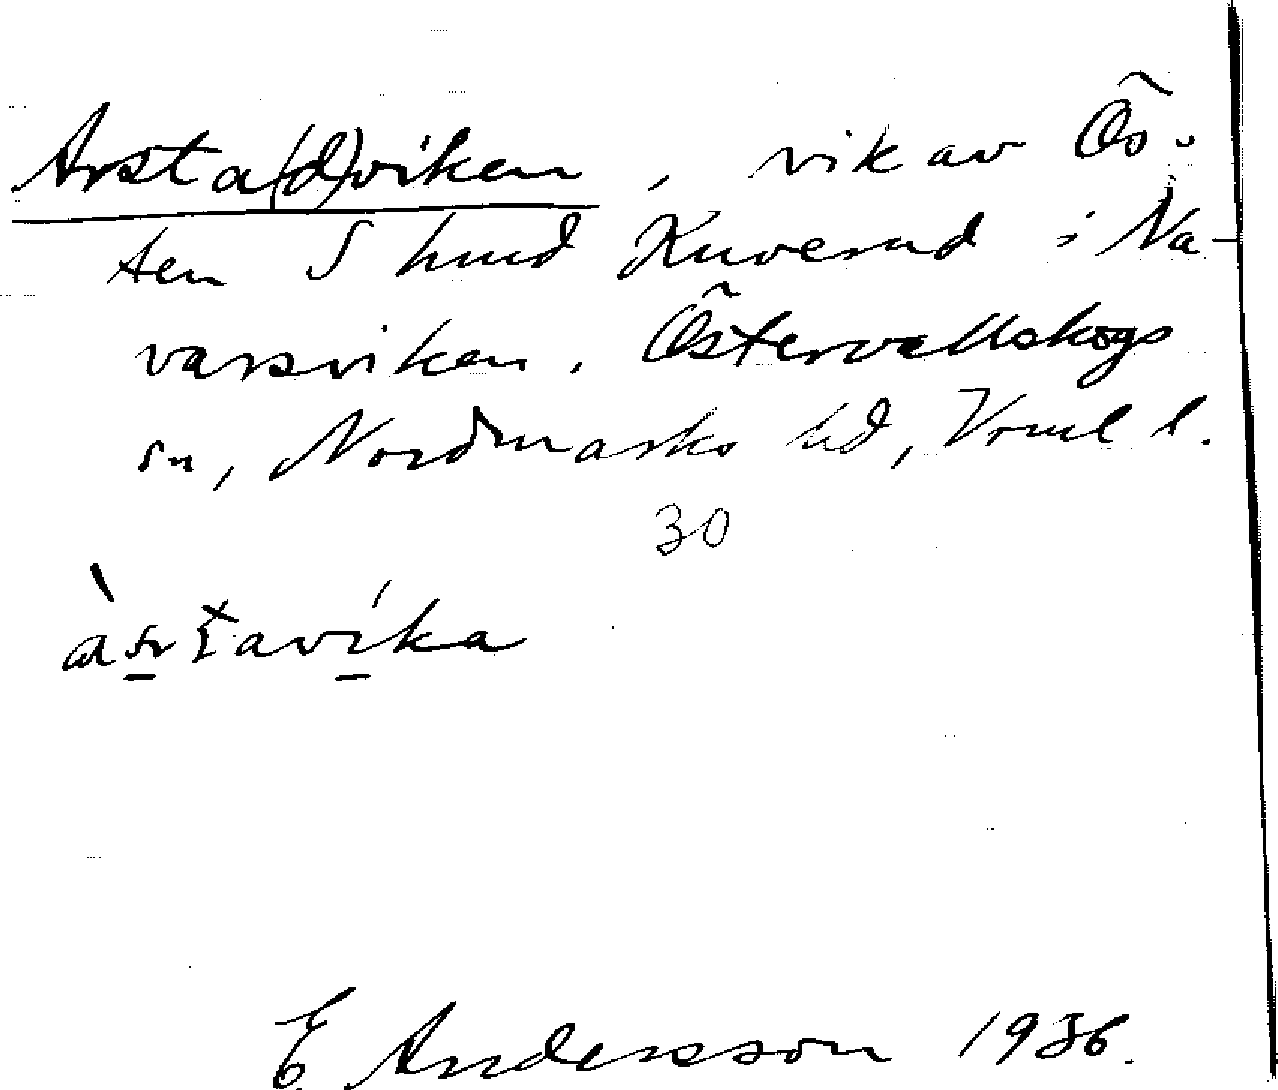 Arsta(d)viken, vik av Ös-
ten S hmd Kuverud i Na-
varsviken. Östervallskogs
sn, Nordmarks hd, Vrml l.
30
E Andersson 1936.